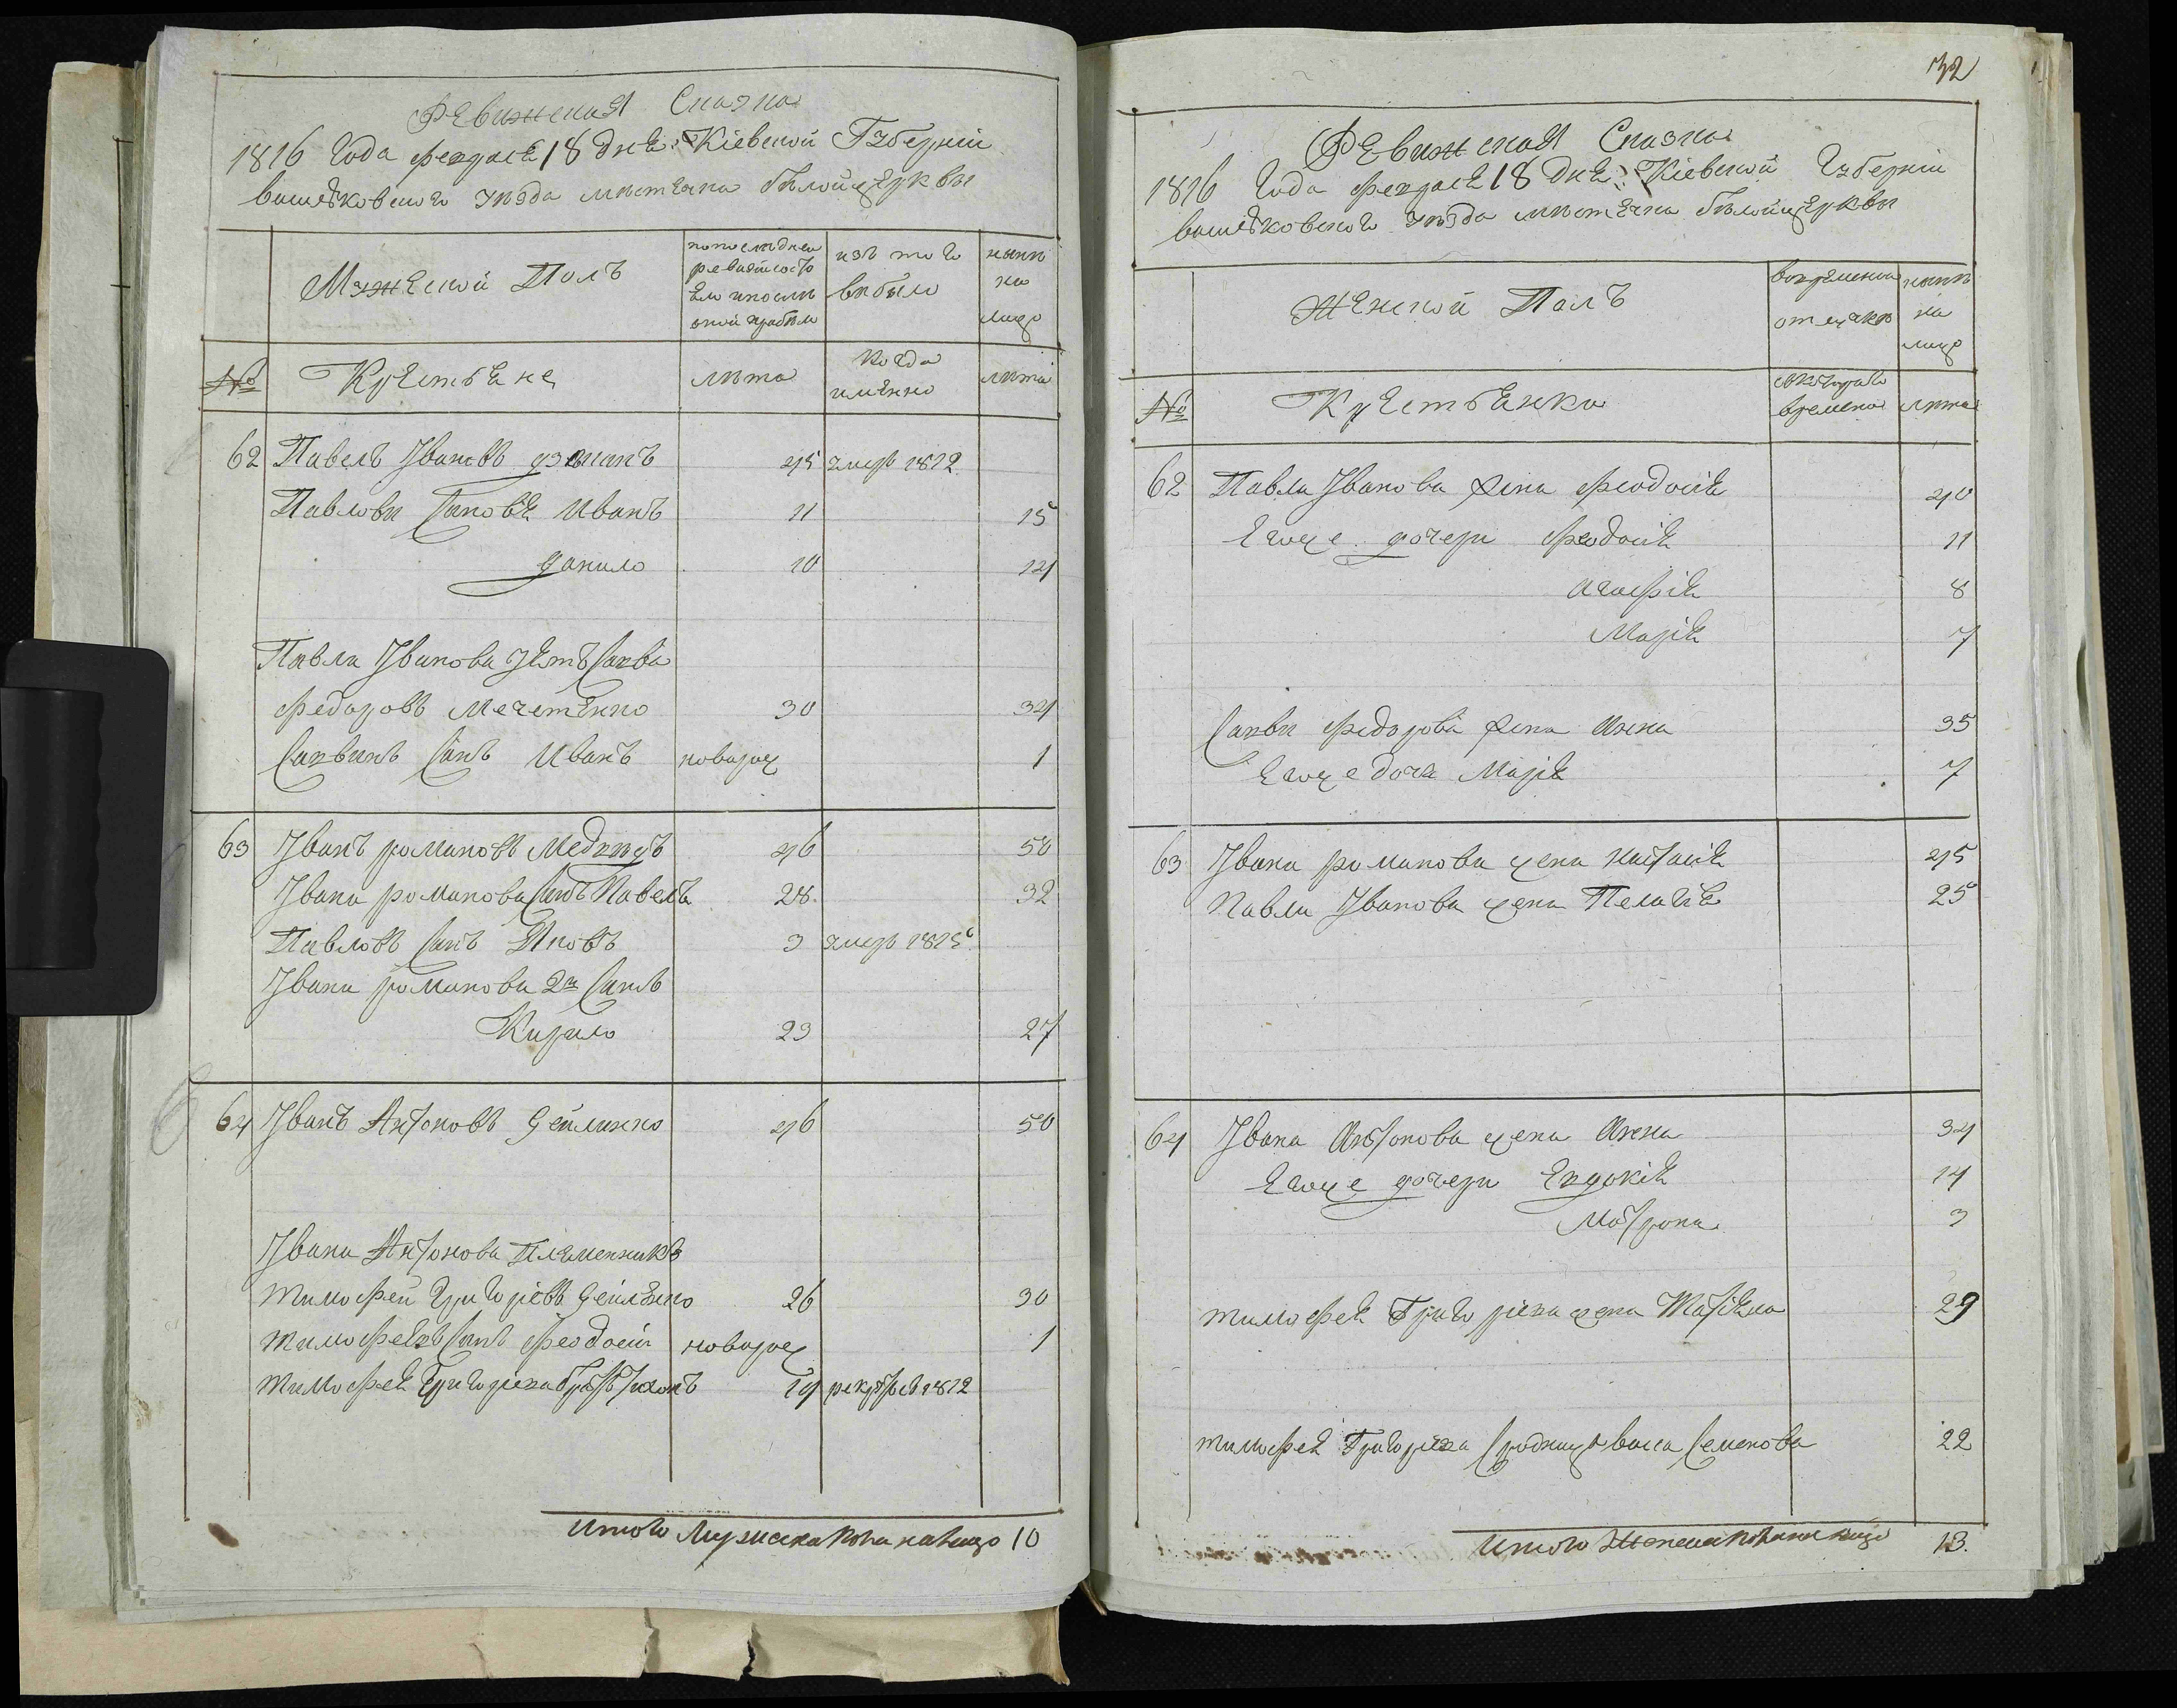 Ревижская Сказка
1816 Года февраля 18 дня Кіевской Губерніи
васильковского уезда местечка белойцеркви
Мужеской Полъ
по последней ревизіи состояло и после оной прибыло
изъ того выбыло
ныне на лицо
№
Крестьяне
лета
когда именно
лета
62 Павелъ Ивановъ 45 умеръ 1812
Павловы Сыновья Иванъ 11 15
данило 10 14
Павла Иванова зять Савва
Федоровъ 30 34
Саввинъ Сынъ Иванъ новорож 1
63 Иванъ романовъ 46 50
Ивана романова Сынъ Павелъ 28 32
Павловъ Сынъ Яковъ 3 умеръ 1815
Ивана романова 2й Сынъ
Кирило 23 27
64 Иванъ Антоновъ Дейненко 46 50
Ивана Антонова Племенникъ
тимофей Григоріевъ 26 30
тимофеевъ Сынъ феодосій новорож 1
тимофея Григоріева братъ тихонъ 19 рекрутъ 1812
Итого Мужеска пола налицо 10
32
Ревижская Сказка
1816 Года февраля 18 дня Кіевской Губерніи
васильковского уезда местечка белойцеркви
Женской Полъ
вовременной отлучке
ныне на лицо
№
Крестьянки
съ котораго времени
лета
62 Павла Иванова жена феодосія 40
Егоже дочери феодосія 11
агафія 8
Марія 7
Саввы федорова жена Анна 35
Егоже дочь Марія 7
63 Ивана романова жена настасія 45
Павла Иванова жена Пелагія 25
64 Ивана Антонова жена Анна 34
Егоже дочери Евдокія 14
Матрона 3
тимофея Григоріева жена Татіяна 29
тимофея Григоріева Семенова 22
Итого Женска пола на лицо 13.